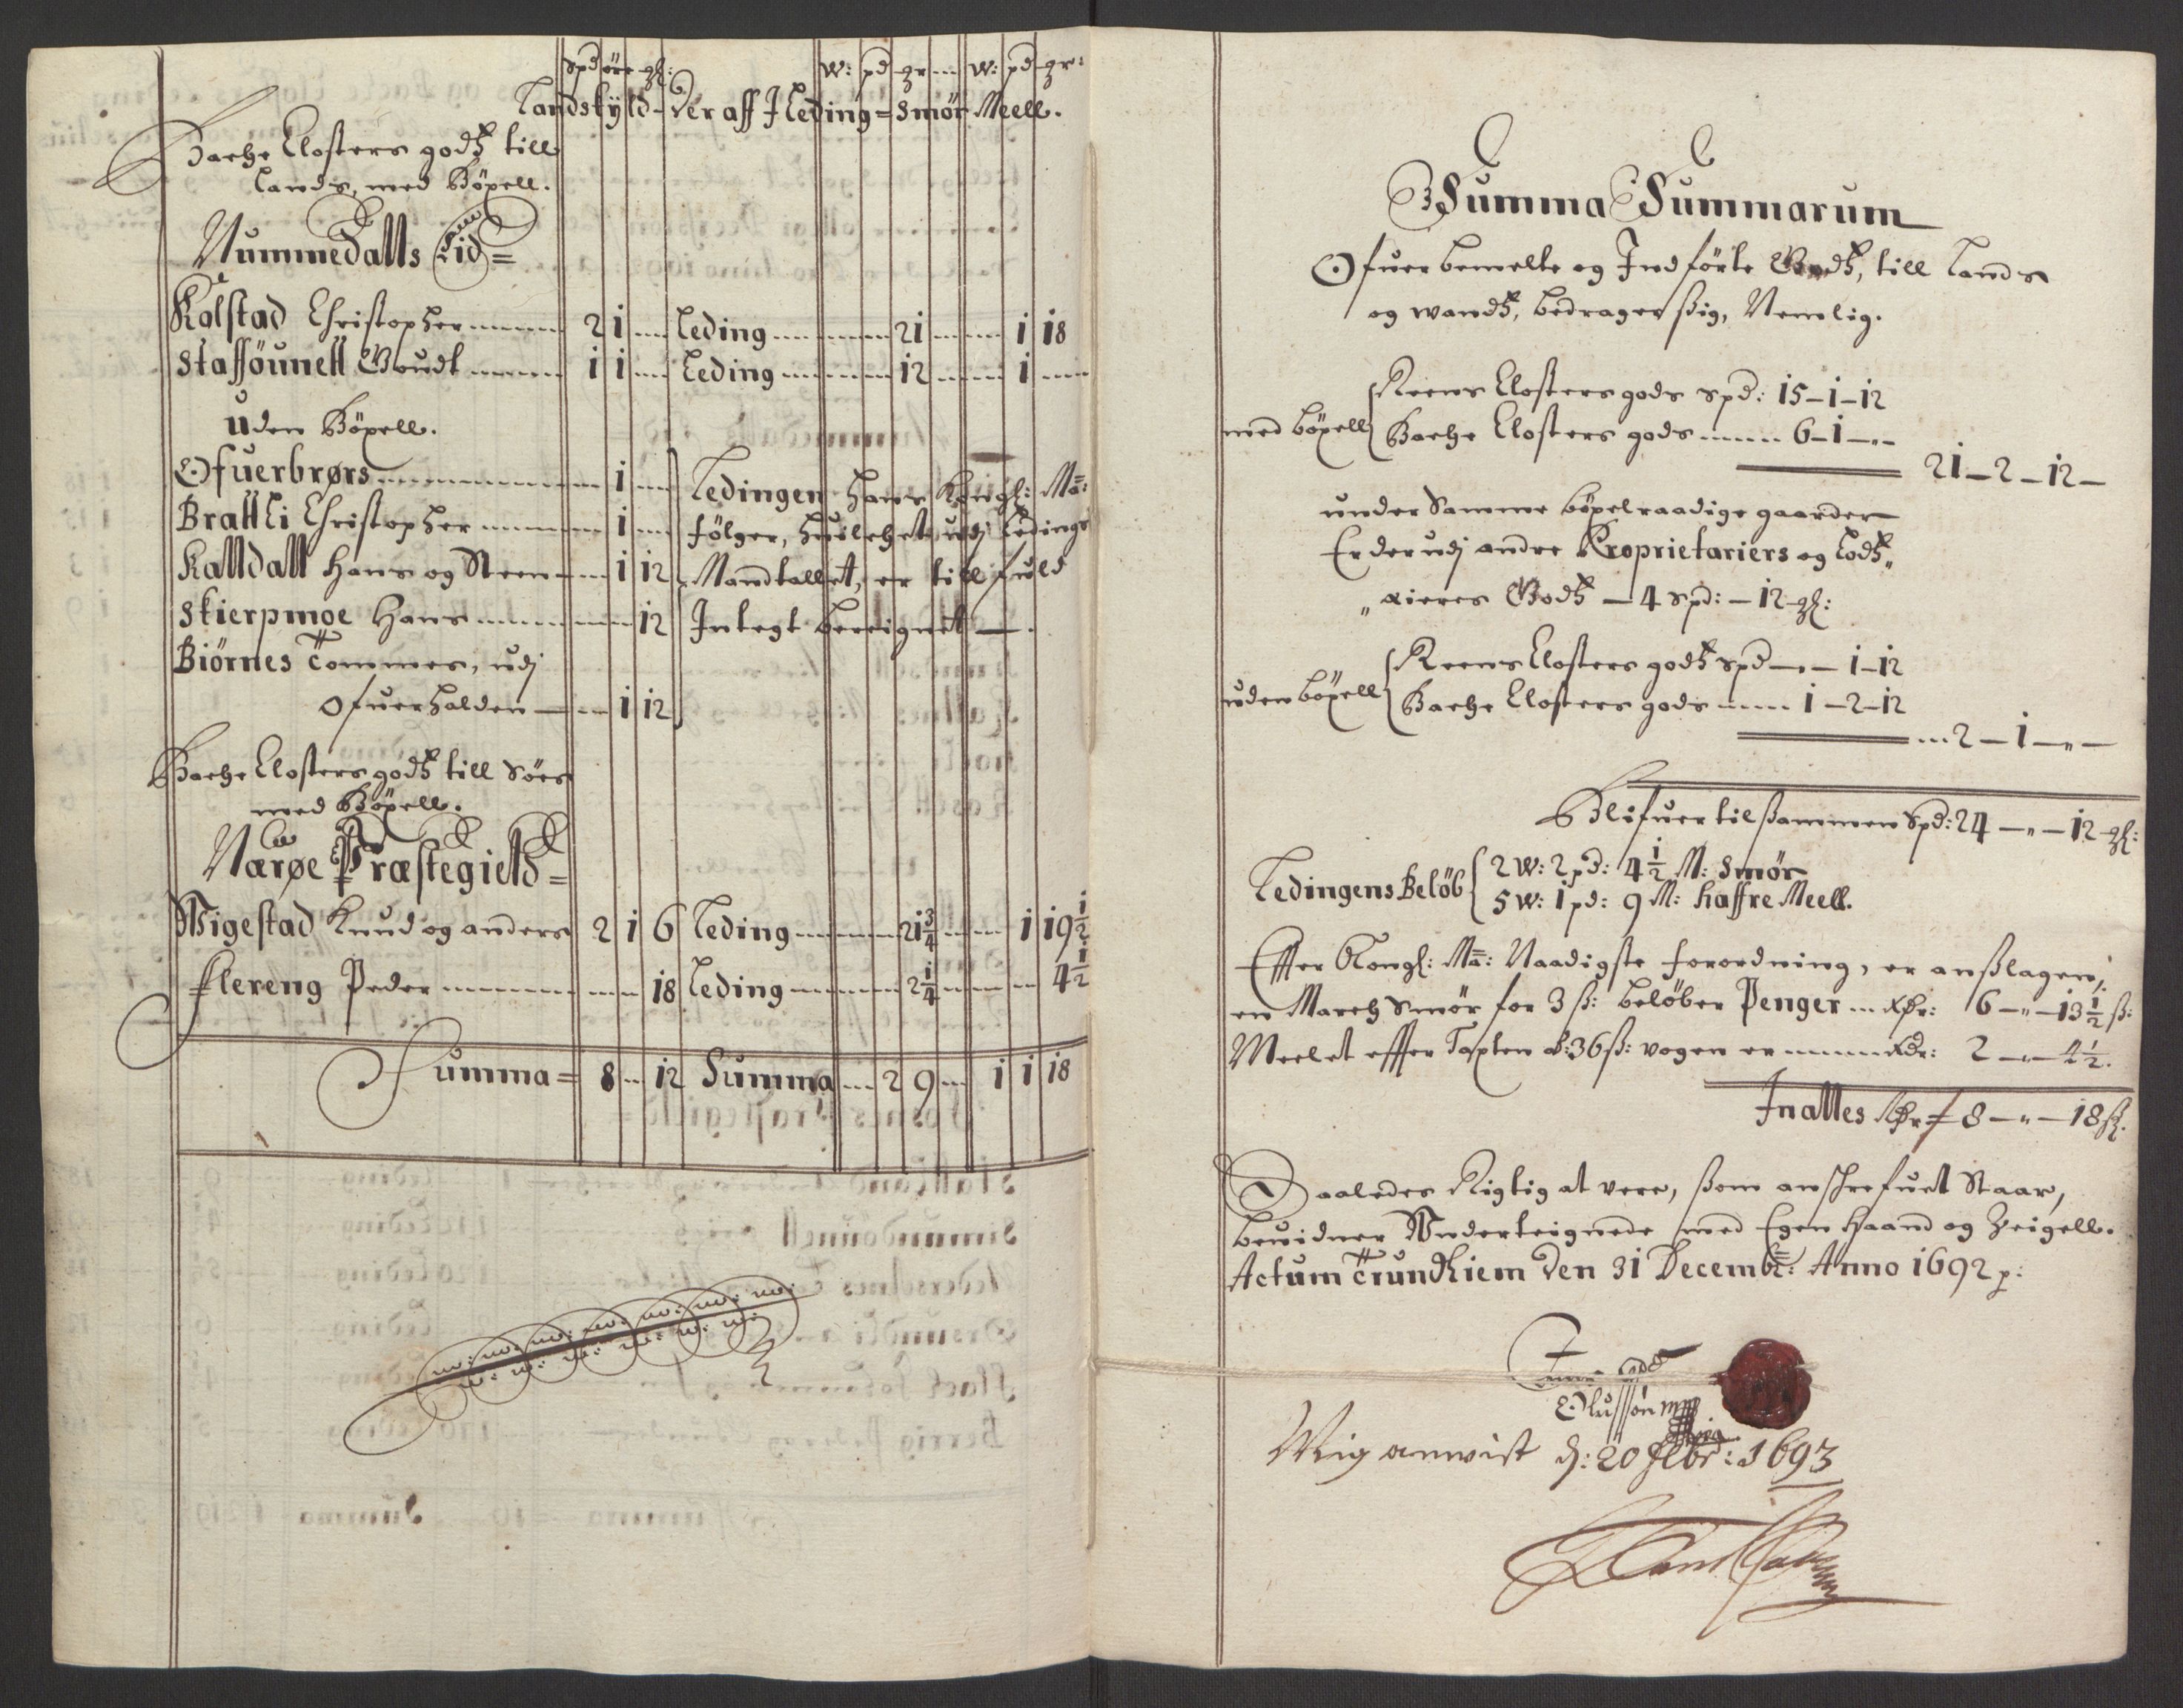 Spd øre gl: w: pd gr w: pd gr:
Landskÿld - Der aff J Leding = Smør Meell.
Backe Closters godtz till
Lands, med Böxell.
Nummedalls Lid =
Kolstad Christopher 2 1 Leding 21 1 18
Stafføunell Goudt 1 1 Leding 12 1
Uden Böxell.
Ofuerbrørs 1 Ledingen hans Kongl: Ma:
Brattli Christopher 1 følger, huilchet udj Ledings
Kalldall Hans og Steen 1 12 Mandtallet, er till fuld
Skierpmoe Hans 12 Integt beregnet
Biörnes Tommes, udj
Ofuerhalden 1 12
Backe Closters godtz till Søes
med Böxell.
Nærøe Præstegield =
Wigestad Knud og anders 2 1 6 Leding 21 3/4 1 19 1/2
Flereng Peder 18 Leding 2 1/4 4 1/2
Summa = 8 12 Summa 2 9 1 1 18
Summa Summarum
Ofuerbemelte og Indførte Godtz, till Lands
og wandtz, bedrager sig, Nemlig.
med böxell { Reens Closters gods Spd: 15 - 1 - 12
Backe Closters gods 6 - 1 - "
21 - 2 - 12 -
under Samme böxelraadige gaarder
Er der udj andre Proprietariers og Lodtz„
„ eieres Godtz - 4 Spd: - 12 gl:
uden böxell { Reens Closters godtz Spd - " - 1 - 12
Backe Closters gods 1 - 2 - 12
2 - 1 - " -
Blifuer tilsammen Spd: 24 - " - 12 gl:
Ledingens Beløb { 2 W: 2 pd: 4 1/2 M: Smør
5 W: 1 pd: 9 M: Haffre Meell.
Effter Kongl: Ma: Naadigste forordning, er anslagen,
en March Smør for 3 ß: beløber Penger Rdr: 6 - " - 13 1/2 ß:
Meelet effter Taxten à: 36 ß: vogen er Rdr: 2 - " - 4 1/2.
Jnalles Rdr 8 - " - 18 ß.
Saaledes Rigtig at vere, som anschrefuet Staar,
bevidner Underteignede med Egen Haand og Zeigell.
Actum Trundhiem den 31 Decembr: Anno 1692 p:
Olussøn mpp
Mig anvist d: 20 Febr: 1693